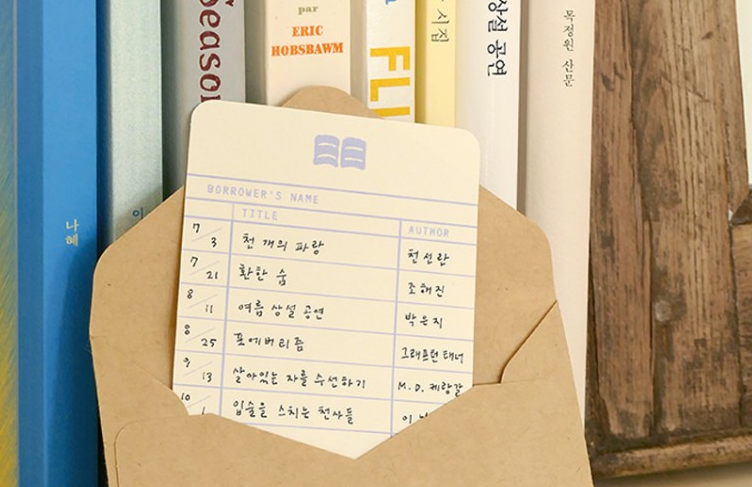 Season
par
ERIC
HOBSBAWM
FLU
시집
상설 공연
목정원 산문
나혜
BORROWER'S NAME
TITLE
AUTHOR
7/3 천 개의 파랑 천선란
7/21 환한 숨 조해진
8/11 여름 상설 공연 박은지
8/25 포에버리즘 그래프턴 태너
9/13 살아있는 자를 수선하기 M.D.케랑갈
10/1 입술을 스치는 천사들 이